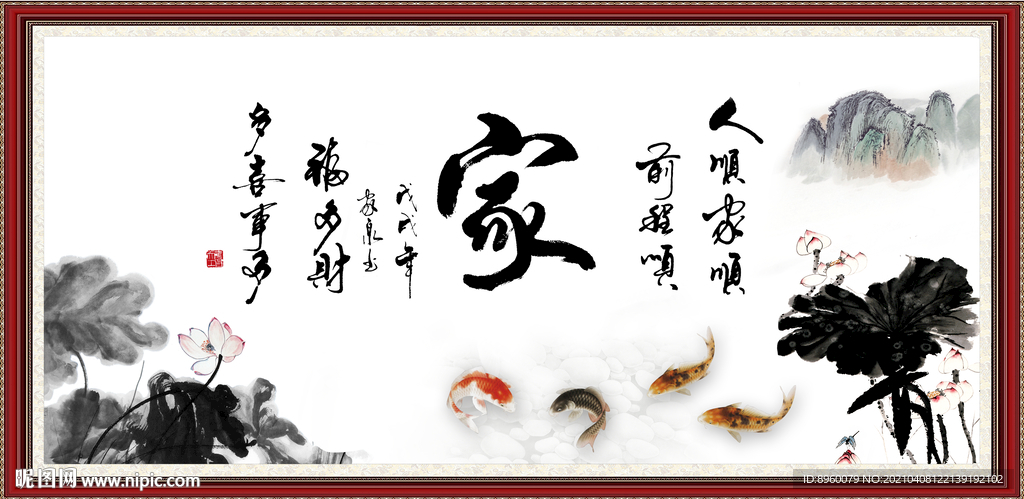 人順家順
前程順
家
戊戌年
家泉书
福多財
多喜事多
昵图网 www.nipic.com
ID:8960079 NO:20210408122139192102